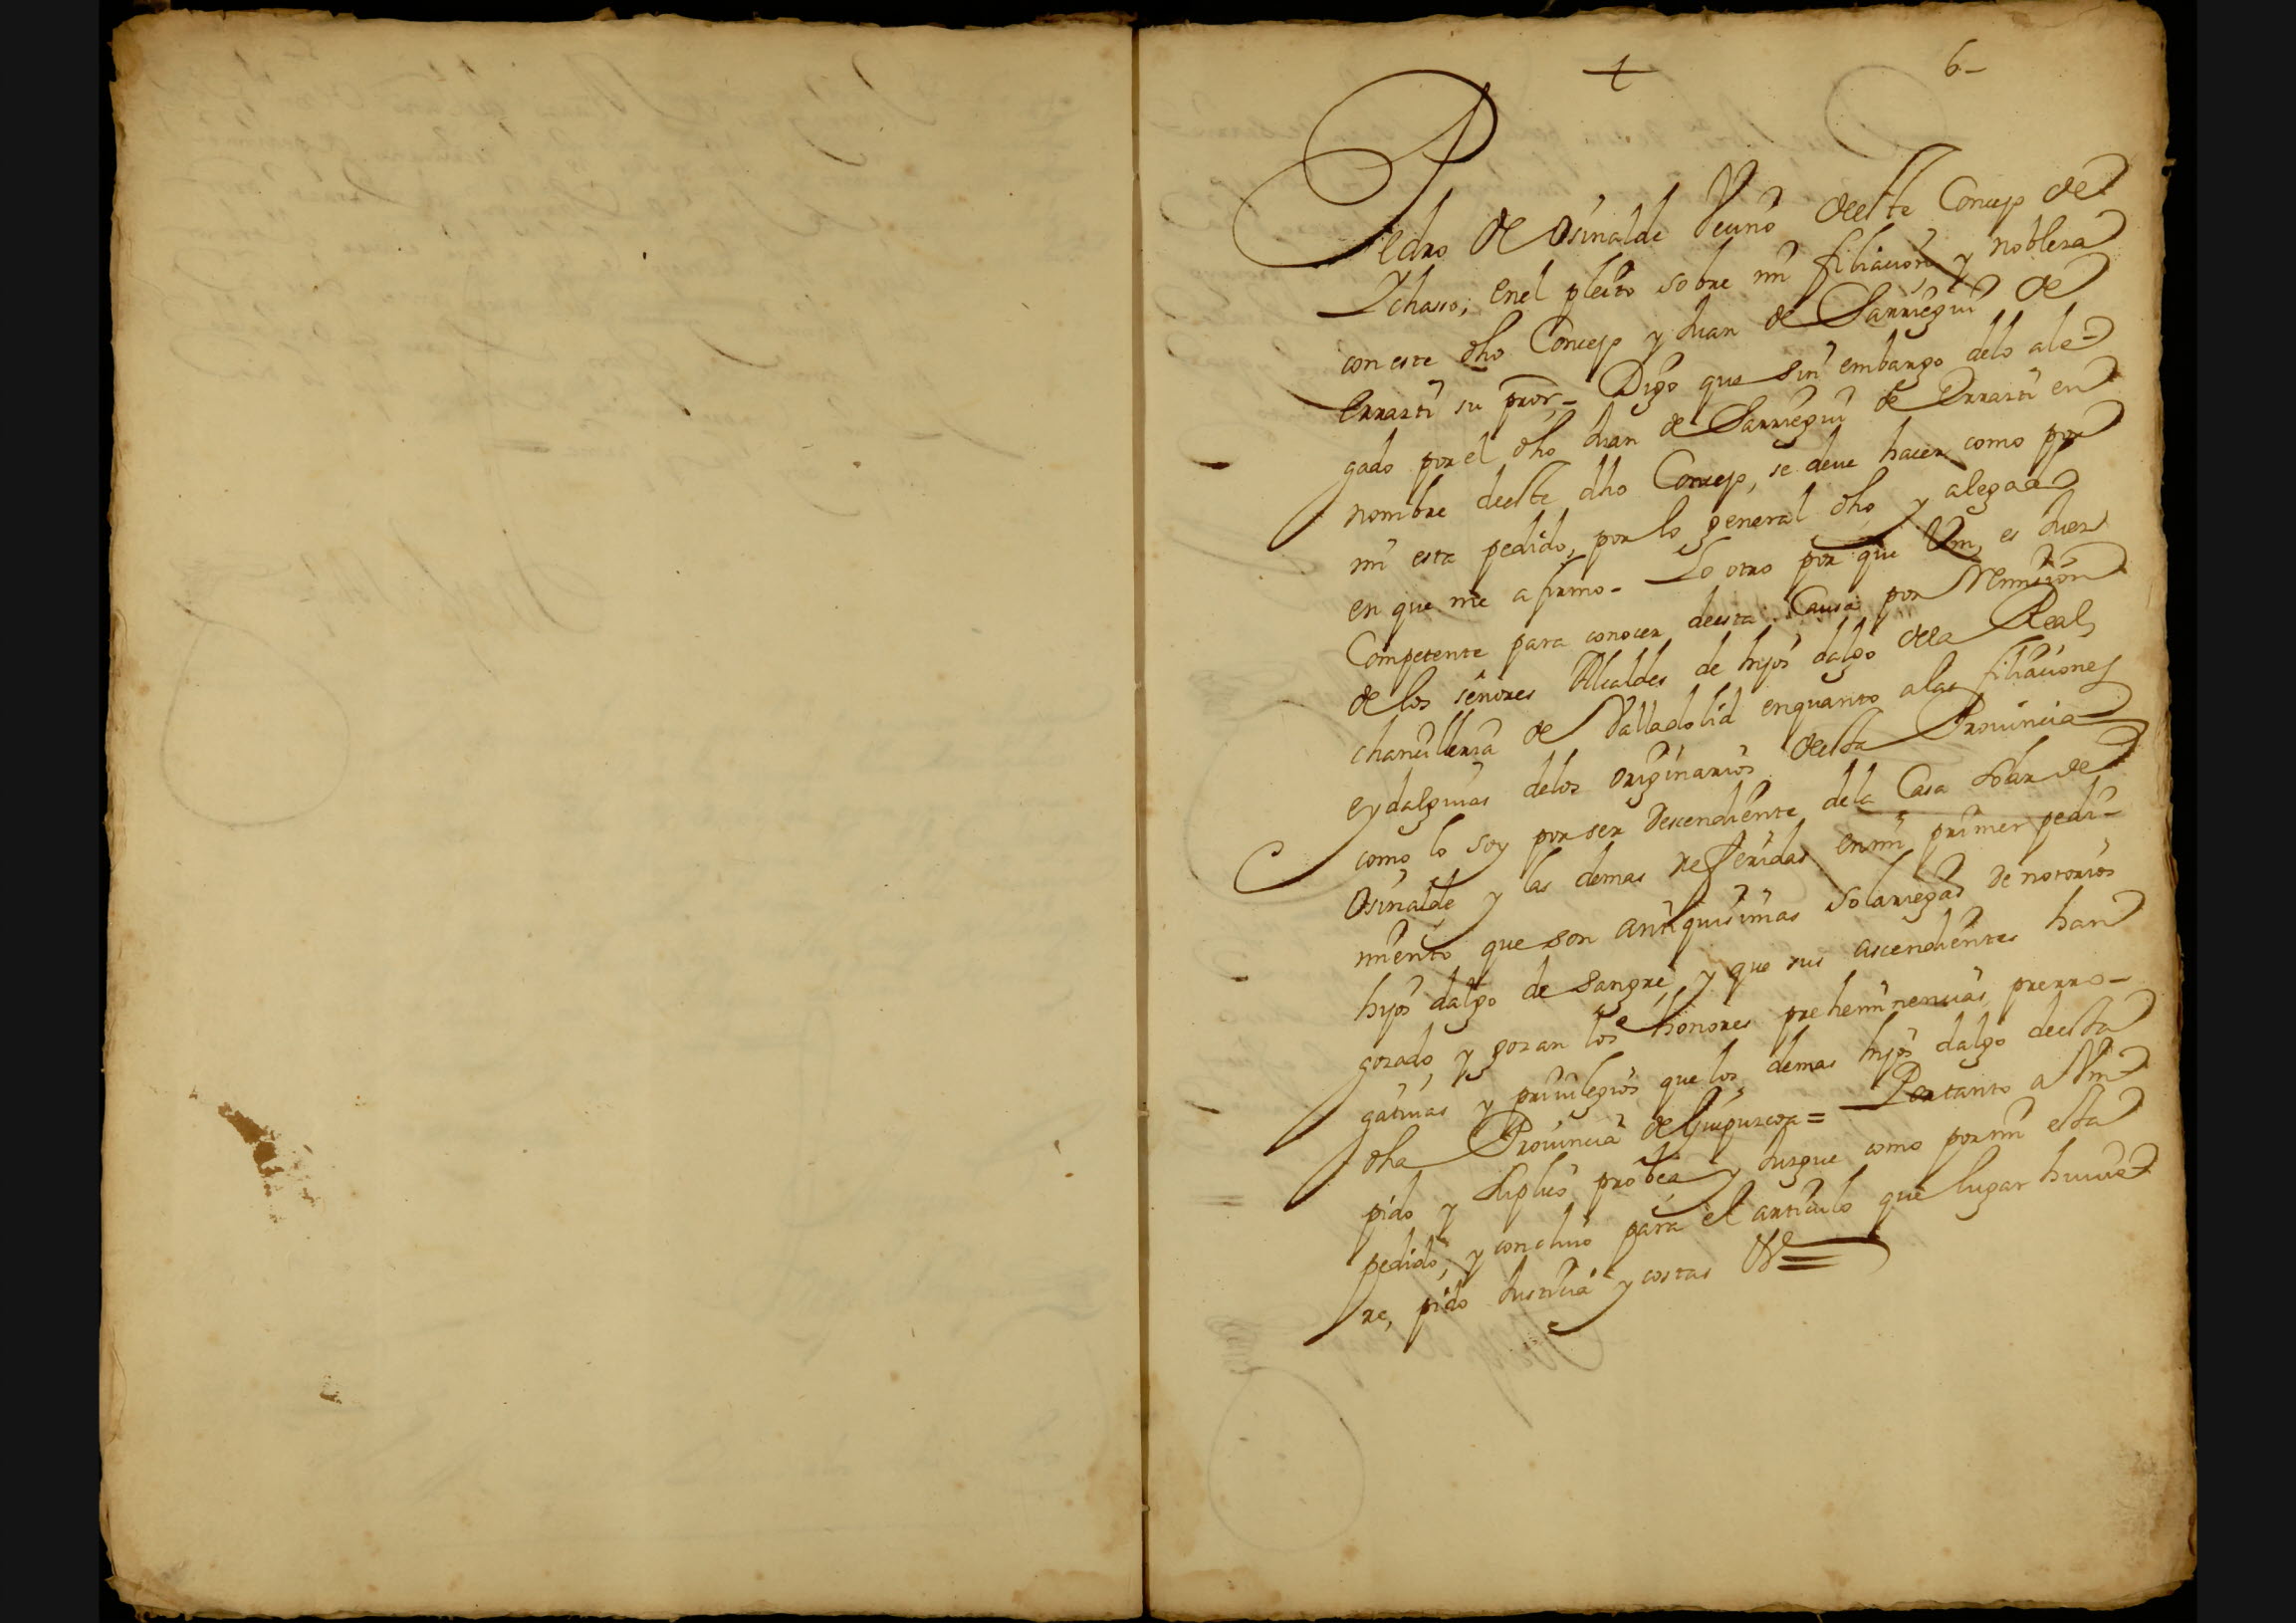 + 6-
Pedro de Osinalde Vecino deeste Concejo de
Ychasso, enel pleito sobre mi filiacion y nobleza
con este dho Concejo y Juan de Sarriegui de
Errazti su pror,- Digo que sin embargo delo ale-
gado por el dho Juan de Sarriegui de Errazti en
nombre deeste dho Concejo, se deue hacer como por
mi esta pedido, por lo general dho y alegado
en que me afirmo- Lo otro por que Vm, es Juez
Competente para conocer deesta Causa por Remission
de los señores Alcaldes de hijos dalgo dela Real
chancilleria de Valladolid enquanto alas filiaciones
eydalguias delos originarios deesta Prouincia
como lo soy por ser Descendiente dela Casa solar de
Osinalde y las demas refferidas enmi primer pedi-
miento que son antiquisimas solariegas de notorios
hijos dalgo de sangre, y que sus ascendientes han
gozado, y gozan los honores preheminencias, prerro-
gatiuas y priuilegios que los demas hijos dalgo deesta
dha Prouincia de Guipuzcoa = Portanto a Vm
pido y suplico probea y Juzgue como por mi esta
pedido, y concluio para el articulo que lugar huuie-
re, pido Justicia y costas &